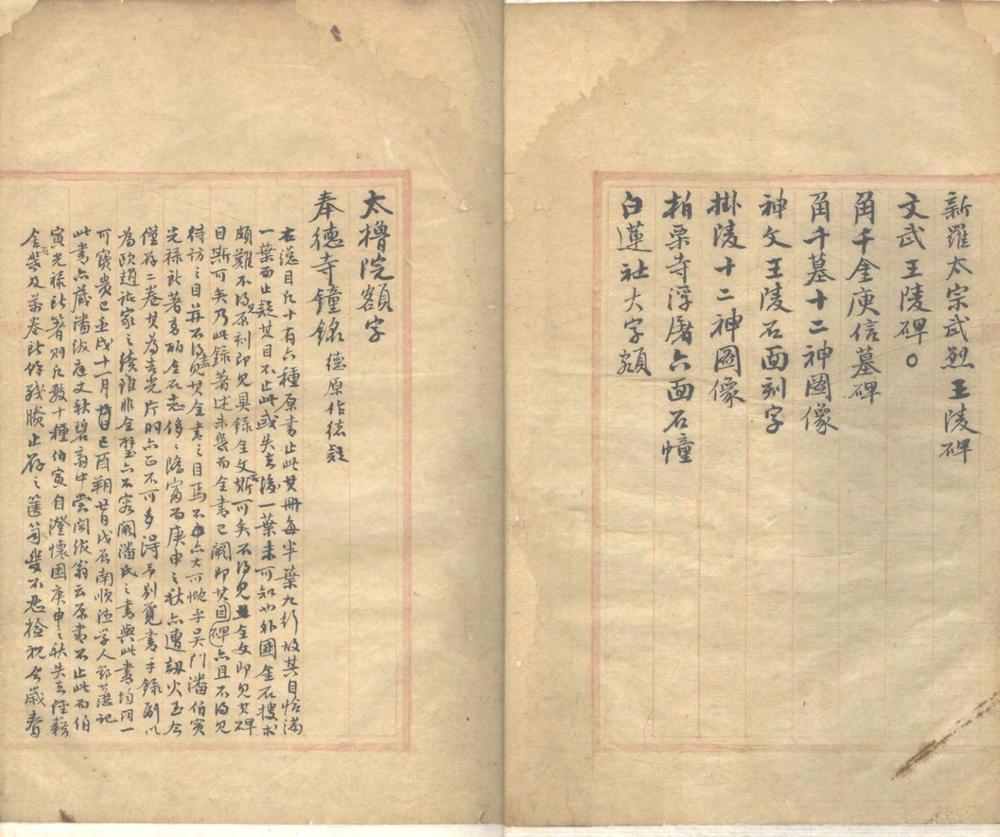 新羅太宗武烈王陵碑
文武王陵碑〇
角干金庾信墓碑
角干墓十二神圖像
神文王陵石面刻字
掛陵十二神圖像
柏栗寺浮屠六面石幢
白蓮社大字額
太櫓院額字
奉德寺鐘銘 德原作徳疑
右總目凡十有六種原書止此其冊每半葉九行故其目恰滿
一葉而止疑其目不止此或失去後一葉未可知也外國金石搜求
頗難不得原刻即見具錄全文斯可矣不得見全文即見其碑
目斯可矣乃此錄著述未幾而全書已闕即其目碑亦且不得見
待訪之目再不得見其全書之目焉不大可慨乎吳門潘伯寅
光祿所著高酈金石志侈侈隆富而庚申之秋亦遭劫火至今
僅存二卷其為吉光片羽亦正不可多得弟別覓書手錄副以
為歐趙諸家之續雖非全璧亦不容闕潘氏之書與此書均同一
可寶貴已壬戌十一月己酉朔廿日戊辰南順漁學人記
此書亦藏潘紱庭丈秋碧齋中嘗聞紱翁云原書不止此而伯
寅光祿所箸則凡數十種伯寅自澄懷園庚申之秋失去經籍
金石及萬卷所餘殘賸止存之篋笥幾不忍檢視今歲春